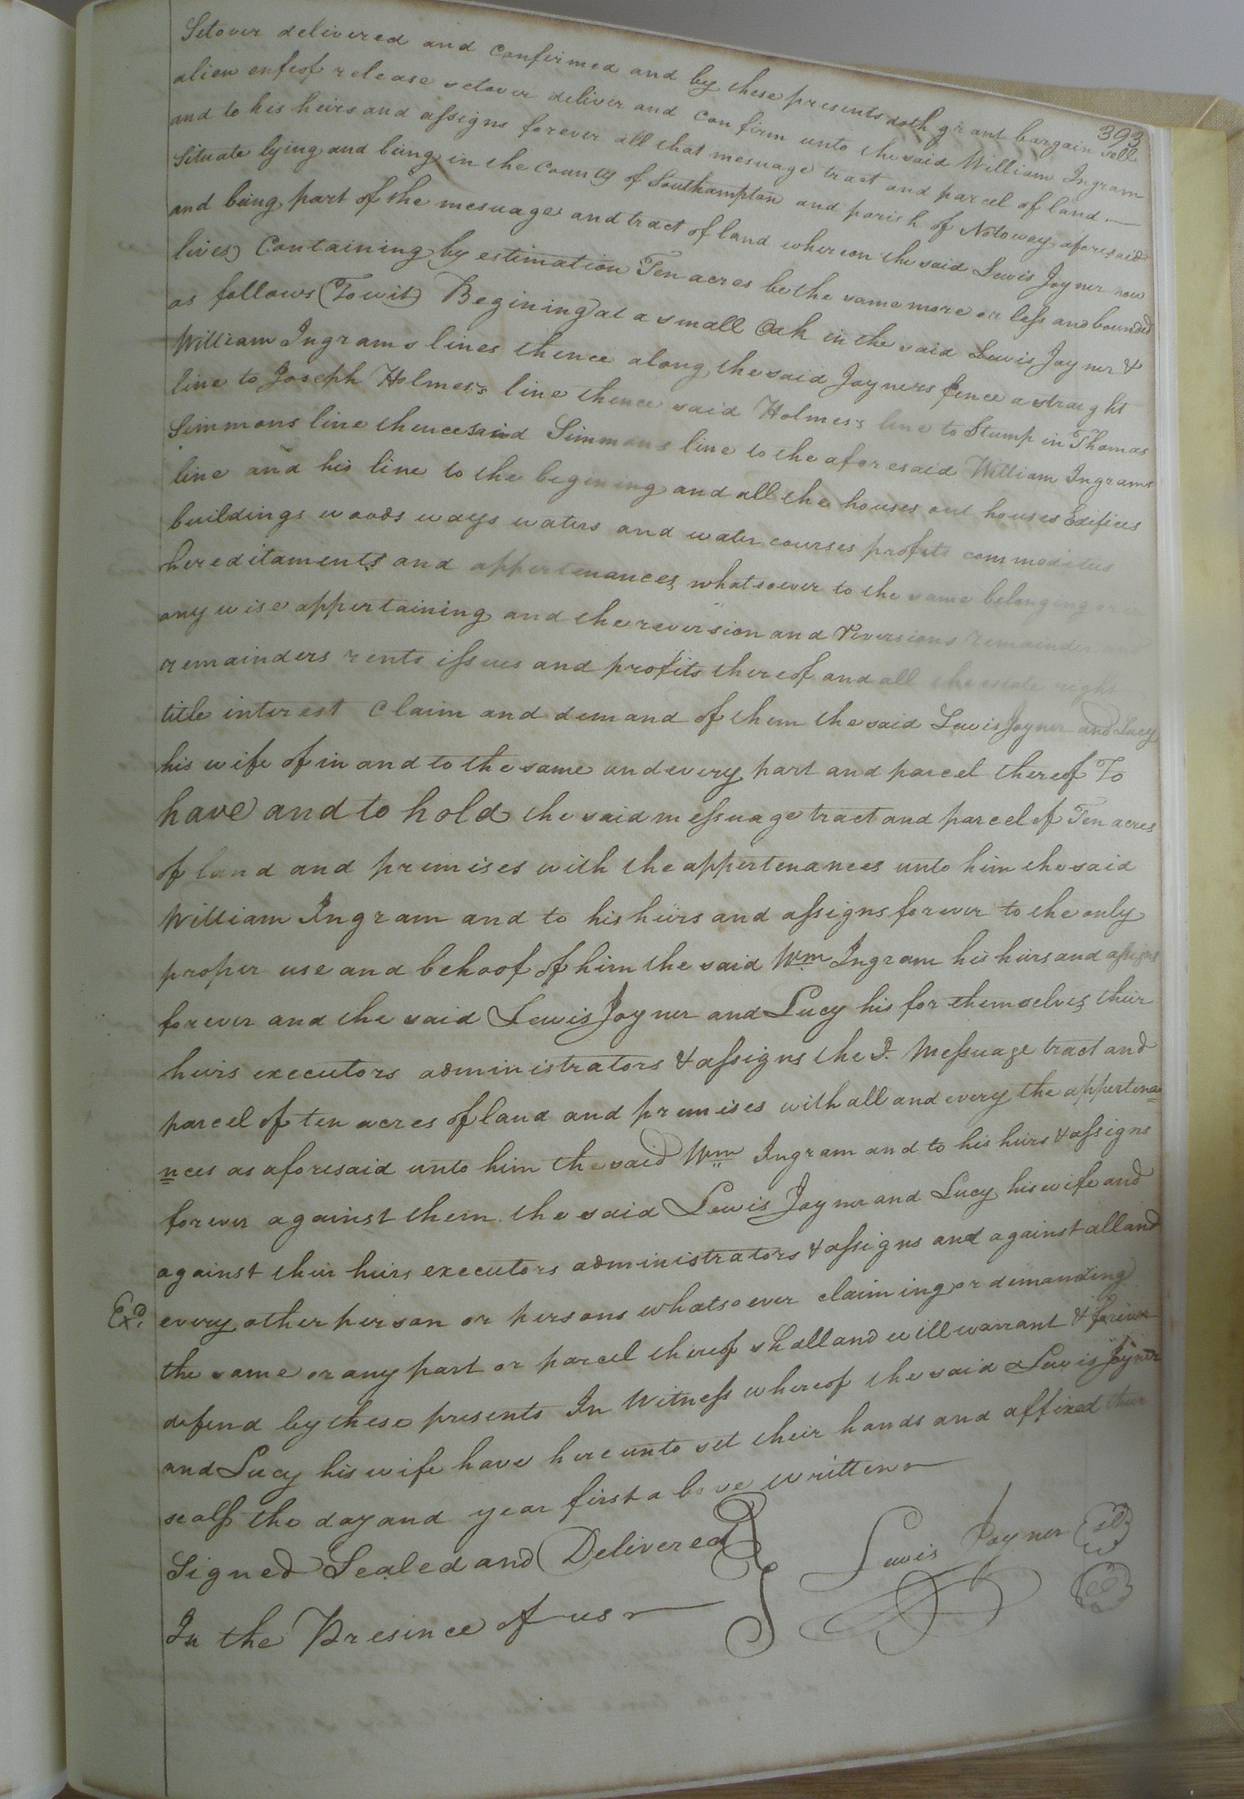 393
Setover delivered and confirmed and by these presents doth grant bargain sell
alien enfeof release setover deliver and confirm unto the said William Ingram
and to his heirs and assigns forever all that mesuage tract and parcel of land
Situate lying and being in the County of Southampton and parish of Notoway aforesaid
and being part of the mesuage and tract of land whereon the said Lewis Joyner now
lives Containing by estimation Ten acres be the same more or less and bounded
as follows (Towit) Begining at a small Oak in the said Lewis Joyner &
William Ingrams lines thence along the said Joyners fence a straight
line to Joseph Holmes's line thence said Holmes's line to Stump in Thomas
Simmons line thence said Simmons line to the aforesaid William Ingrams
line and his line to the begining and all the houses out houses Edifices
buildings woods ways waters and water courses profits commodities
hereditaments and appertenances whatsoever to the same belonging or
any wise appertaining and the reversion and Reversions remainder
remainders rents issues and profits thereof and all the estate right
title interest Claim and demand of them the said Lewis Joyner and Lucy
his wife of in and to the same and every part and parcel thereof To
have and to hold the said messuage tract and parcel of Ten acres
of land and premises with the appertenances unto him the said
William Ingram and to his heirs and assigns forever to the only
proper use and behoof of him the said Wm Ingram his heirs and assigns
forever and the said Lewis Joyner and Lucy his for themselves their
heirs executors administrators & assigns the sd. Messuage tract and
parcel of ten acres of land and premises with all and every the appertena=
nces as aforesaid unto him the said Wm Ingram and to his heirs & assigns
forever against them the said Lewis Joyner and Lucy his wife and
against their heirs executors administrators & assigns and against all and
Exd. every other person or persons whatsoever claiming or demanding
the same or any part or parcel thereof shall and will warrant & forever
defend by these presents In Witness whereof the said Lewis Joyner
and Lucy his wife have hereunto set their hands and affixed their
seals the day and year first above written
Signed Sealed and Delivered Lewis Joyner
In the Presince of us